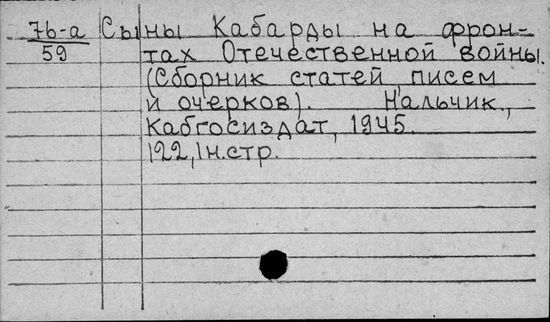 76-а Сыны Кабарды на фрон-
59 тах Отечественной войны.
(Сборник статей писем
и очерков). Нальчик.,
Кабгосиздат, 1945.
122, 1н.стр.